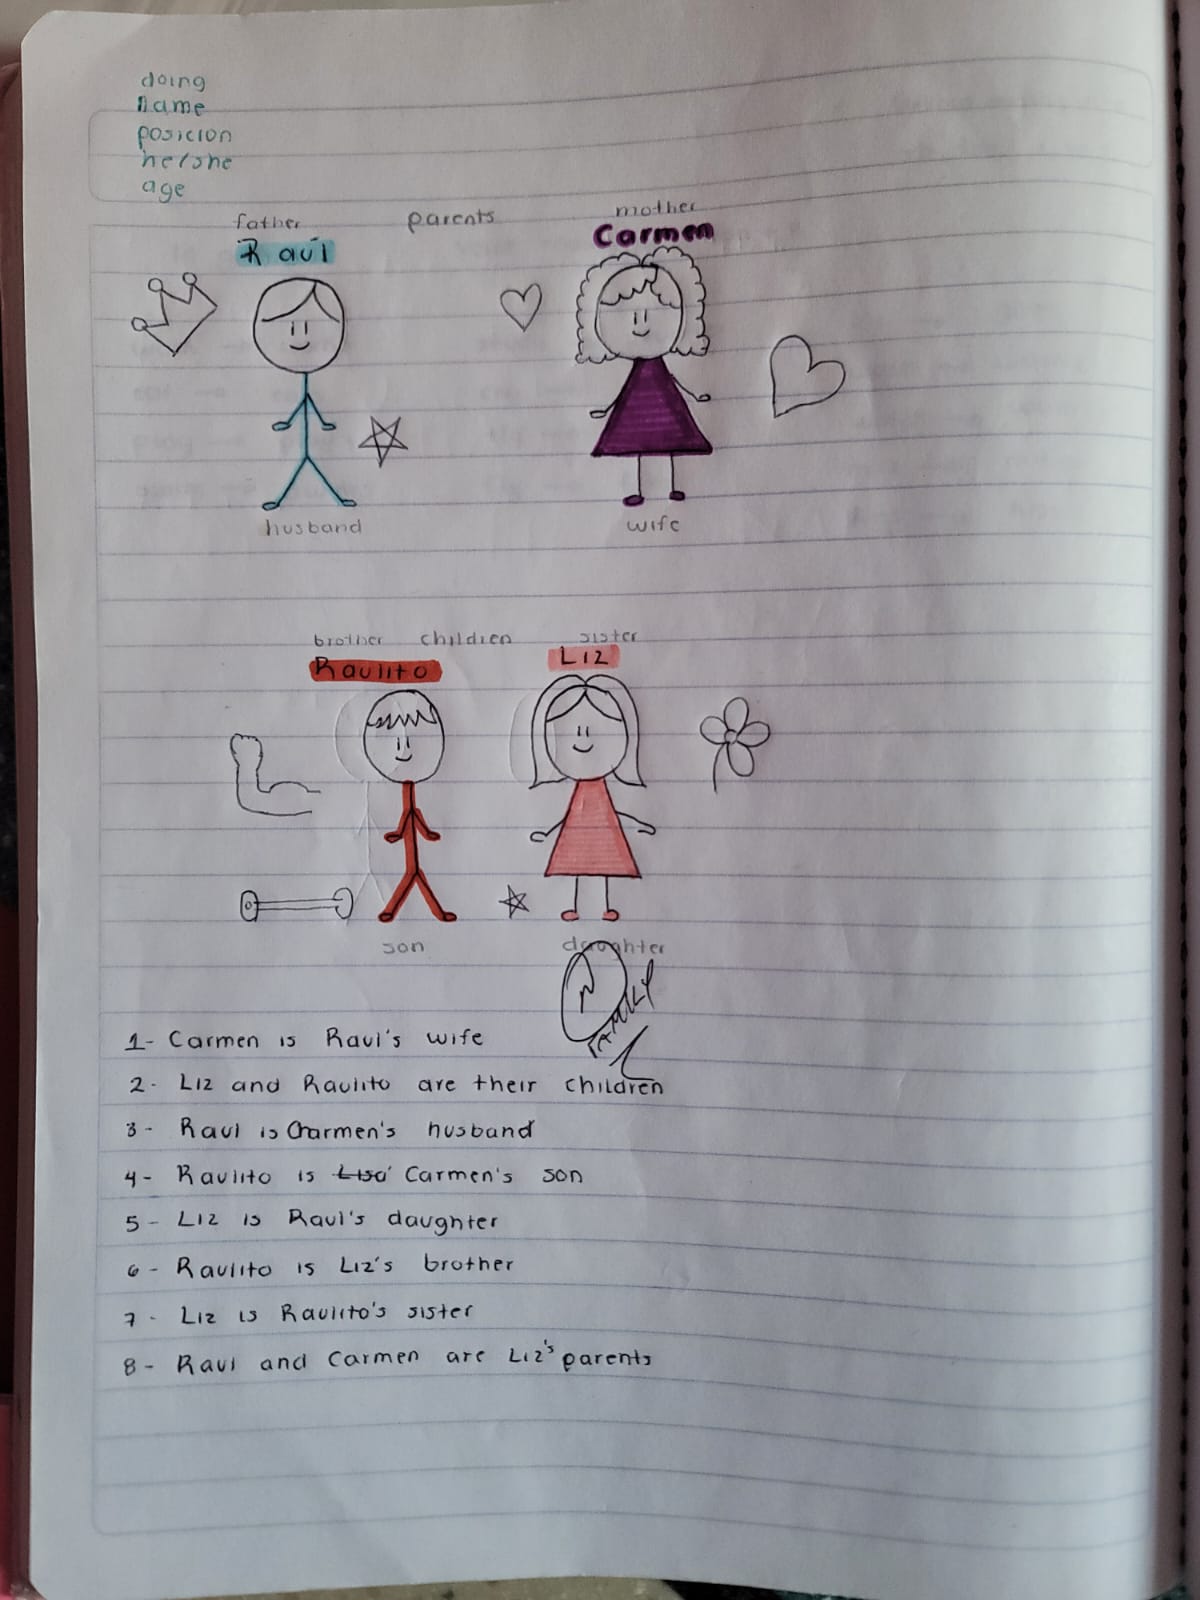 doing
name
posicion
he/she
age
father parents mother
Raúl Carmen
husband wife
brother children sister
Raulito Liz
son daughter
FAMILY
1- Carmen is Raul's wife
2- Liz and Raulito are their children
3- Raul is Carmen's husband
4- Raulito is Lisa' Carmen's son
5- Liz is Raul's daughter
6- Raulito is Liz's brother
7- Liz is Raulito's sister
8- Raul and Carmen are Liz's parents